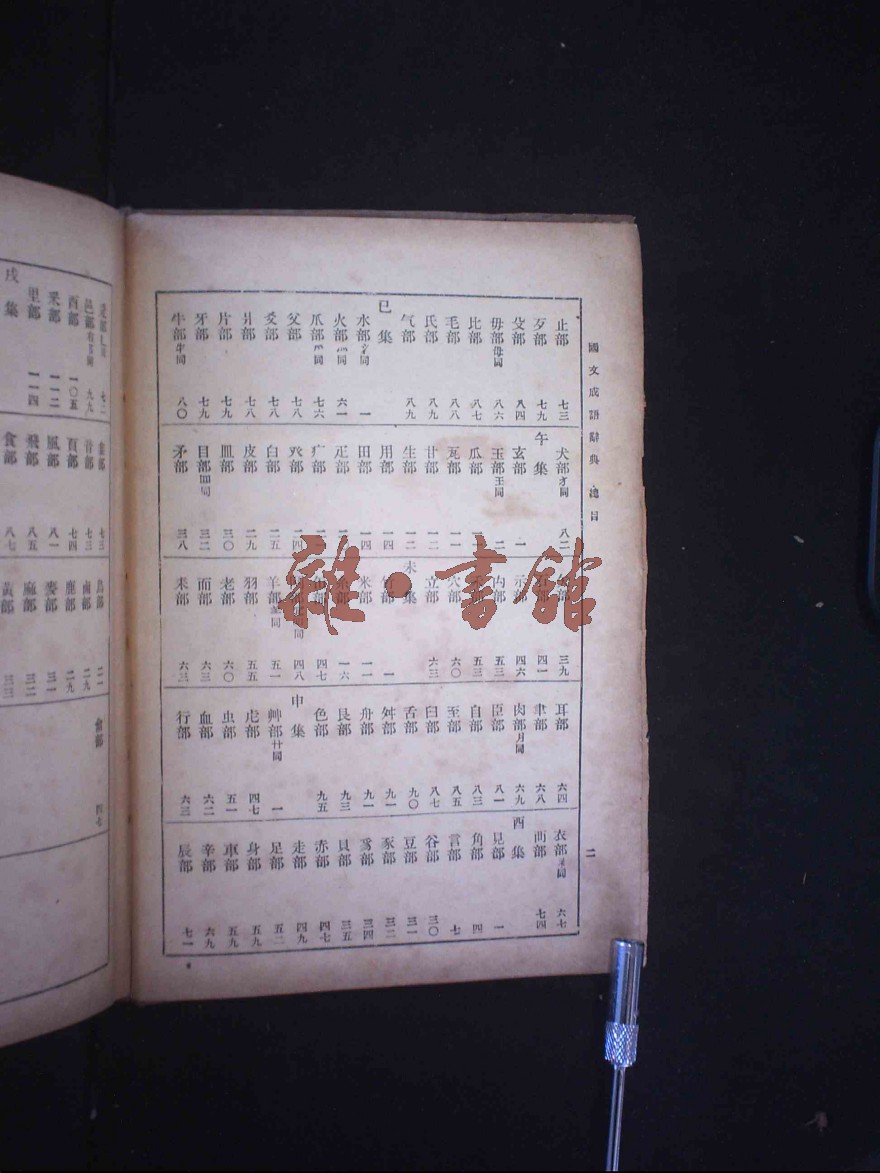 國文成語辭典 總目
二
止部 七三
歹部 七九
殳部 八四
毋部母同 八六
比部 八七
毛部 八八
氏部 八九
气部 八九
巳集
水部氵同 一
火部灬同 六一
爪部爫同 七六
父部 七八
爻部 七八
爿部 七八
片部 七九
牙部 七九
牛部牜同 八〇
犬部犭同 八二
午集
玄部 一
玉部王同 二
瓜部
瓦部 一一
甘部 一二
生部 一二
用部 一四
田部 一四
疋部
疒部
癶部 二四
白部 二五
皮部 二九
皿部 三〇
目部罒同 三二
矛部 三八
三九
四一
示部 四六
禸部 五三
五三
穴部 六〇
立部 六三
未集
竹部 一
米部 一一
糸部 一六
四七
四八
羊部 五一
羽部 五五
老部 六〇
而部 六三
耒部 六三
耳部 六四
聿部 六八
肉部月同 六九
臣部 八一
自部 八三
至部 八五
臼部 八七
舌部 九〇
舛部 九一
舟部 九一
艮部 九三
色部 九五
申集
艸部艹同 一
虍部 四七
虫部 五一
血部 六二
行部 六三
衣部衤同 六七
襾部 七四
酉集
見部 一
角部 四
言部 七
谷部 三〇
豆部 三一
豕部 三二
豸部 三四
貝部 三五
赤部 四七
走部 四九
足部 五二
身部 五九
車部 五九
辛部 六九
辰部 七一
雜·書館
辵部辶同 七二
邑部右阝同 九九
酉部 一〇五
釆部 一一二
里部 一一四
戌集
七三
音部 七三
頁部 七四
風部 八一
飛部 八五
食部 八七
鳥部 二一
鹵部 二九
鹿部 二九
麥部 三一
麻部 三二
黃部 三三
龠部 四七